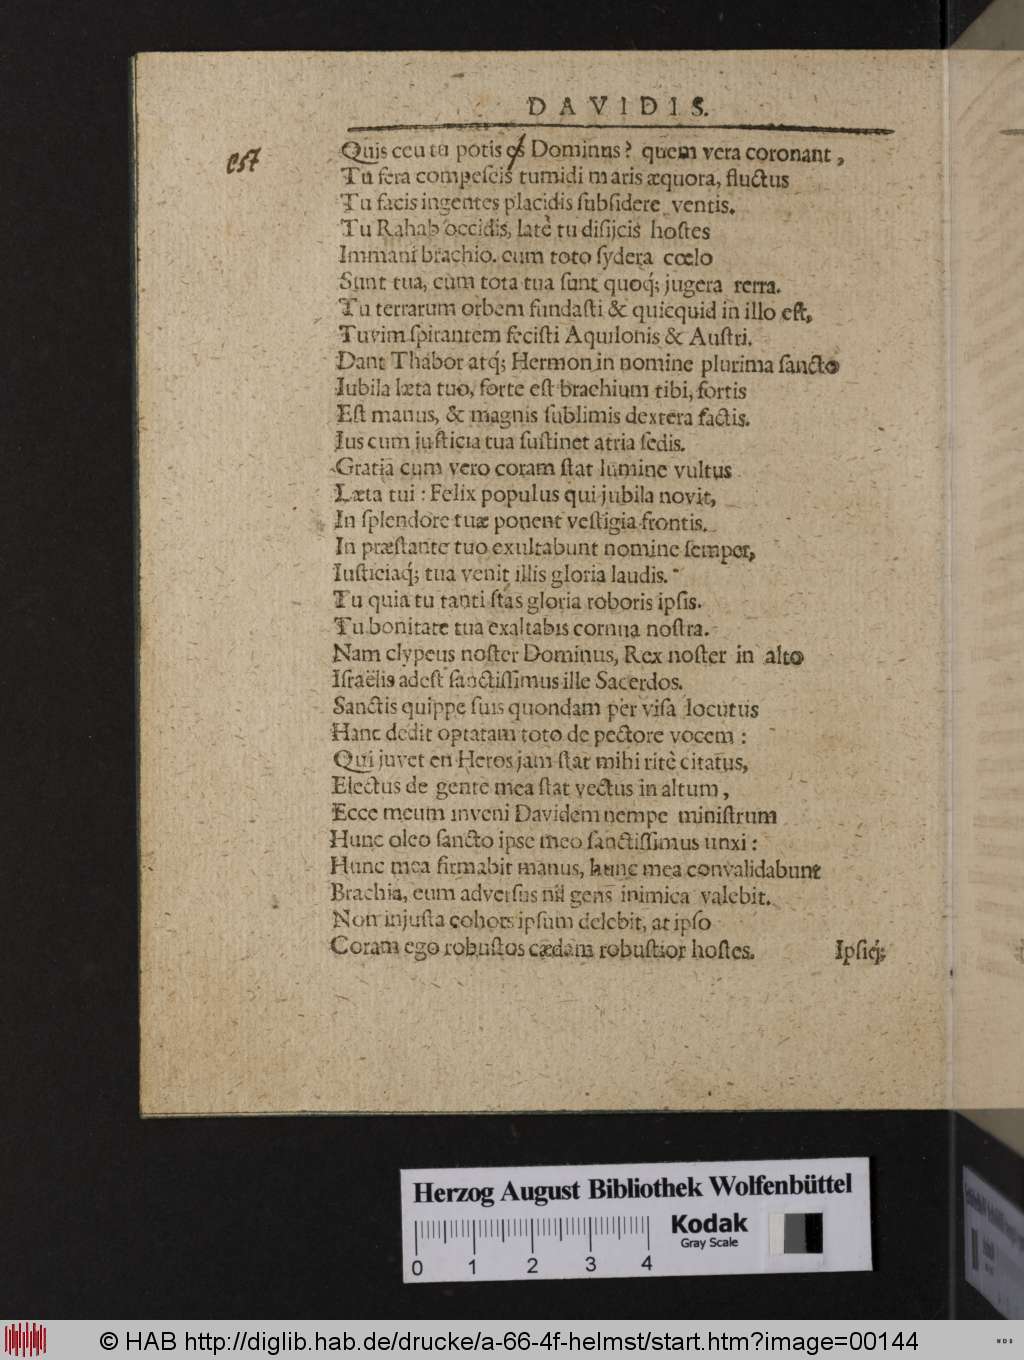 DAVIDIS.
Quis ceu tu potis es Dominus? quem vera coronant,
Tu fera compescis tumidi maris æquora, fluctus
Tu facis ingentes placidis subsidere ventis.
Tu Rahab occidis, latè tu disijcis hostes
Immani brachio. cum toto sydera cœlo
Sunt tua, cùm tota tua sunt quoq́; jugera rerra.
Tu terrarum orbem fundasti & quicquid in illo est,
Tu vim spirantem fecisti Aquilonis & Austri.
Dant Thabor atq́; Hermon in nomine plurima sancto
Iubila læta tuo, forte est brachium tibi, fortis
Est manus, & magnis sublimis dextera factis.
Ius cum justicia tua sustinet atria sedis.
Gratia cum vero coram stat lumine vultus
Læta tui : Felix populus qui jubila novit,
In splendore tuæ ponent vestigia frontis.
In præstante tuo exultabunt nomine semper,
Iusticiaq́; tua venit illis gloria laudis.
Tu quia tu tanti stas gloria roboris ipsis.
Tu bonitate tua exaltabis cornua nostra.
Nam clypeus noster Dominus, Rex noster in alto
Israëlis adest sanctissimus ille Sacerdos.
Sanctis quippe suis quondam per visa locutus
Hanc dedit optatam toto de pectore vocem :
Qui juvet en Heros jam stat mihi ritè citatus,
Electus de gente mea stat vectus in altum,
Ecce meum inveni Davidem nempe ministrum
Hunc oleo sancto ipse meo sanctissimus unxi :
Hunc mea firmabit manus, hunc mea convalidabunt
Brachia, cum adversus nil gens inimica valebit.
Non injusta cohors ipsum delebit, at ipso
Coram ego robustos cædam robustior hostes. Ipsiq́;
Herzog August Bibliothek Wolfenbüttel
Kodak
Gray Scale
0 1 2 3 4
© HAB http://diglib.hab.de/drucke/a-66-4f-helmst/start.htm?image=00144